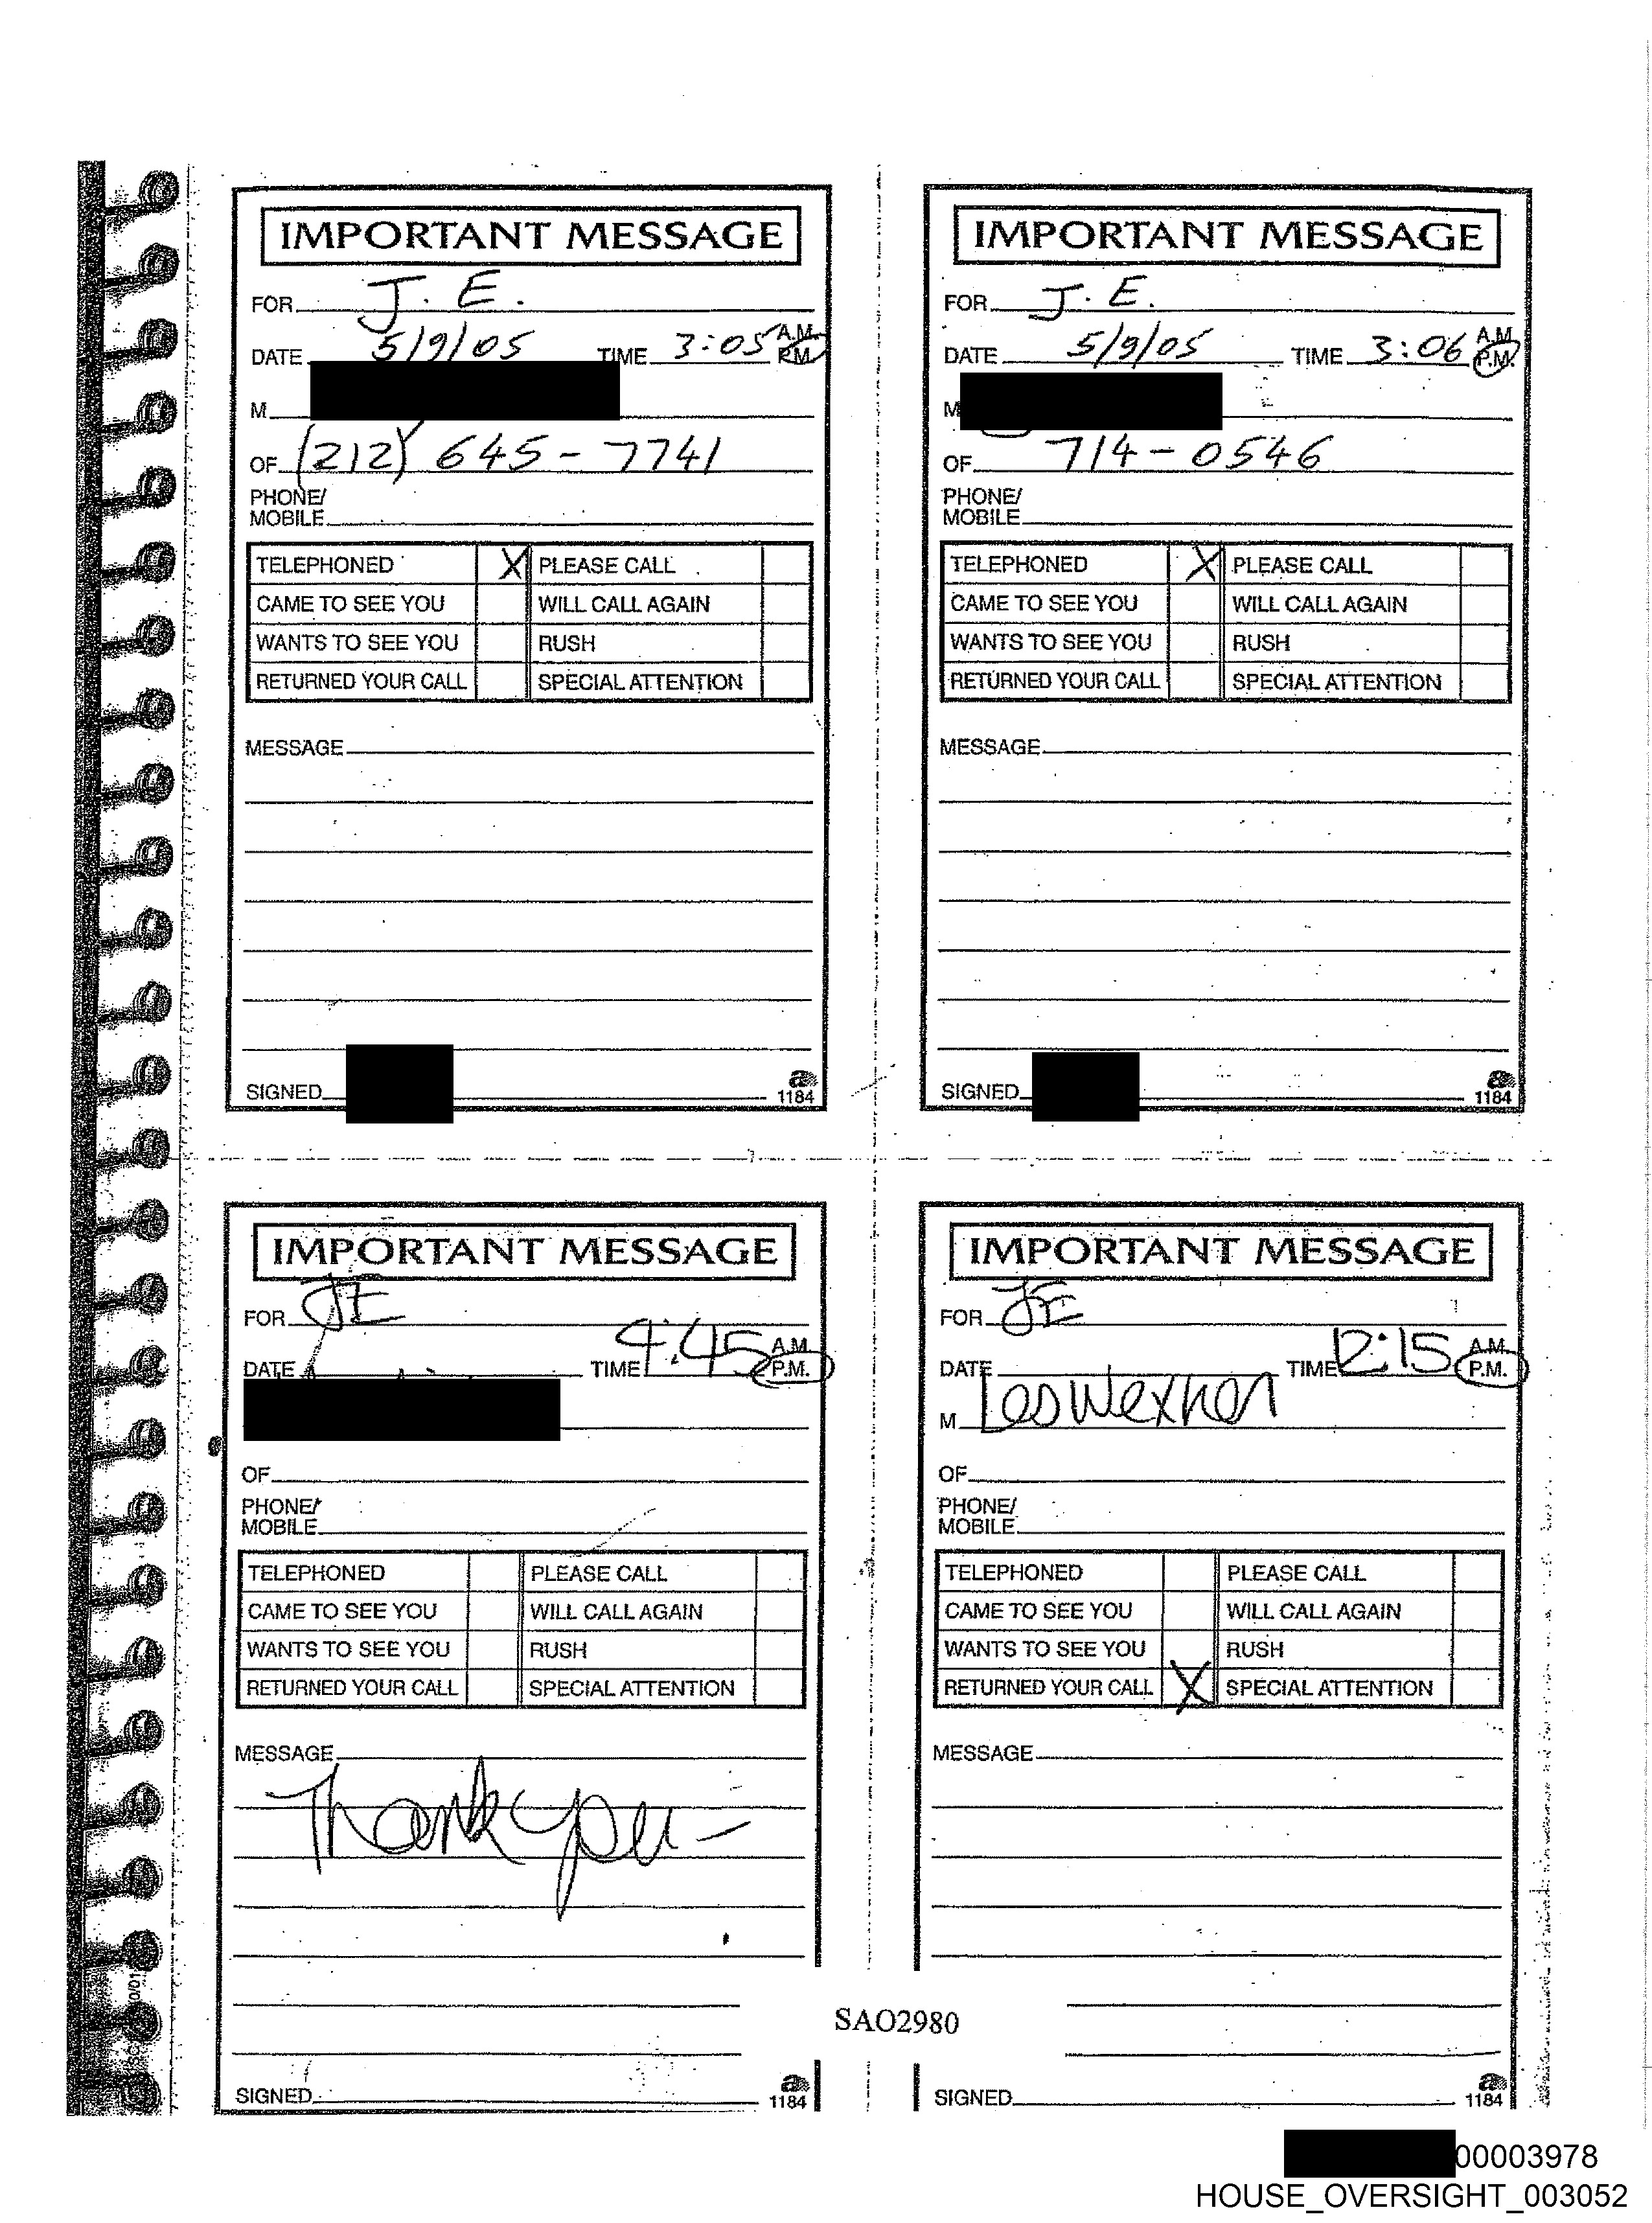 IMPORTANT MESSAGE
FOR J. E.
DATE 5/9/05 TIME 3:05 A.M. P.M.
M
OF (212) 645-7741
PHONE/
MOBILE
TELEPHONED X PLEASE CALL
CAME TO SEE YOU WILL CALL AGAIN
WANTS TO SEE YOU RUSH
RETURNED YOUR CALL SPECIAL ATTENTION
MESSAGE
SIGNED
a
1184
IMPORTANT MESSAGE
FOR J. E.
DATE 5/9/05 TIME 3:06 A.M. P.M.
M
OF 714-0546
PHONE/
MOBILE
TELEPHONED X PLEASE CALL
CAME TO SEE YOU WILL CALL AGAIN
WANTS TO SEE YOU RUSH
RETURNED YOUR CALL SPECIAL ATTENTION
MESSAGE
SIGNED
a
1184
IMPORTANT MESSAGE
FOR JE
DATE TIME 4:45 A.M. P.M.
OF
PHONE/
MOBILE
TELEPHONED PLEASE CALL
CAME TO SEE YOU WILL CALL AGAIN
WANTS TO SEE YOU RUSH
RETURNED YOUR CALL SPECIAL ATTENTION
MESSAGE
Thank you -
SIGNED
a
1184
IMPORTANT MESSAGE
FOR JE
DATE TIME 12:15 A.M. P.M.
M Les Wexner
OF
PHONE/
MOBILE
TELEPHONED PLEASE CALL
CAME TO SEE YOU WILL CALL AGAIN
WANTS TO SEE YOU RUSH
RETURNED YOUR CALL X SPECIAL ATTENTION
MESSAGE
SIGNED
a
1184
SAO2980
00003978
HOUSE_OVERSIGHT_003052